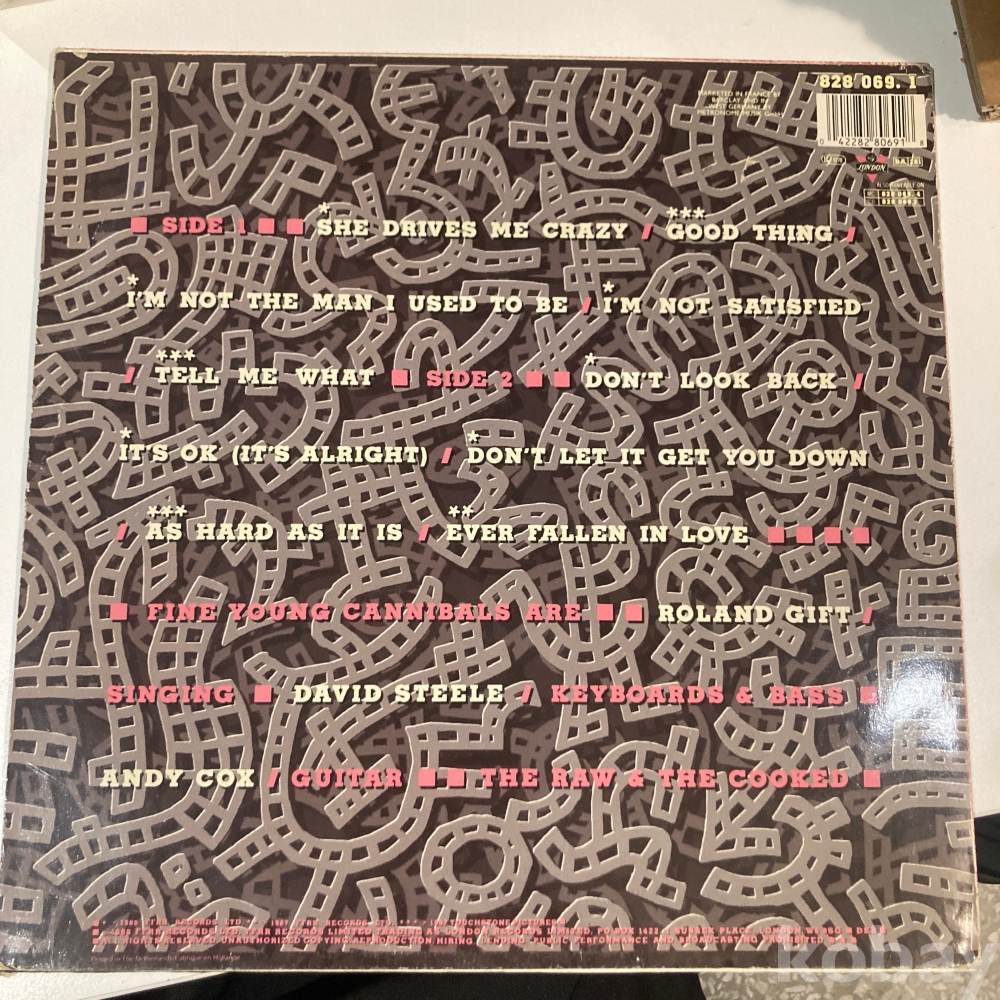 828 069. 1
MARKETED IN FRANCE BY
BARCLAY AND IN
WEST GERMANY BY
METRONOME MUSIK GmbH
0 42282 80691 8
LONDON
ALSO AVAILABLE ON
MC 828 069. 4
CD 828 069. 2
■ SIDE 1 ■ ■ *SHE DRIVES ME CRAZY / ***GOOD THING /
*I'M NOT THE MAN I USED TO BE / *I'M NOT SATISFIED
/ ***TELL ME WHAT ■ SIDE 2 ■ ■ *DON'T LOOK BACK /
*IT'S OK (IT'S ALRIGHT) / *DON'T LET IT GET YOU DOWN
/ ***AS HARD AS IT IS / **EVER FALLEN IN LOVE ■ ■ ■ ■
■ FINE YOUNG CANNIBALS ARE ■ ■ ROLAND GIFT /
SINGING ■ DAVID STEELE / KEYBOARDS & BASS ■
ANDY COX / GUITAR ■ ■ THE RAW & THE COOKED ■
FFRR RECORDS LTD. ** 1987 FFRR RECORDS LTD. *** TOUCHSTONE PICTURES
FFRR RECORDS LTD. FFRR RECORDS LIMITED TRADING AS LONDON RECORDS LIMITED, PO BOX 1422, 1 SUSSEX PLACE, LONDON W6
ALL RIGHTS RESERVED UNAUTHORIZED COPYING, REPRODUCTION HIRING, LENDING PUBLIC PERFORMANCE AND BROADCASTING PROHIBITED
kobay